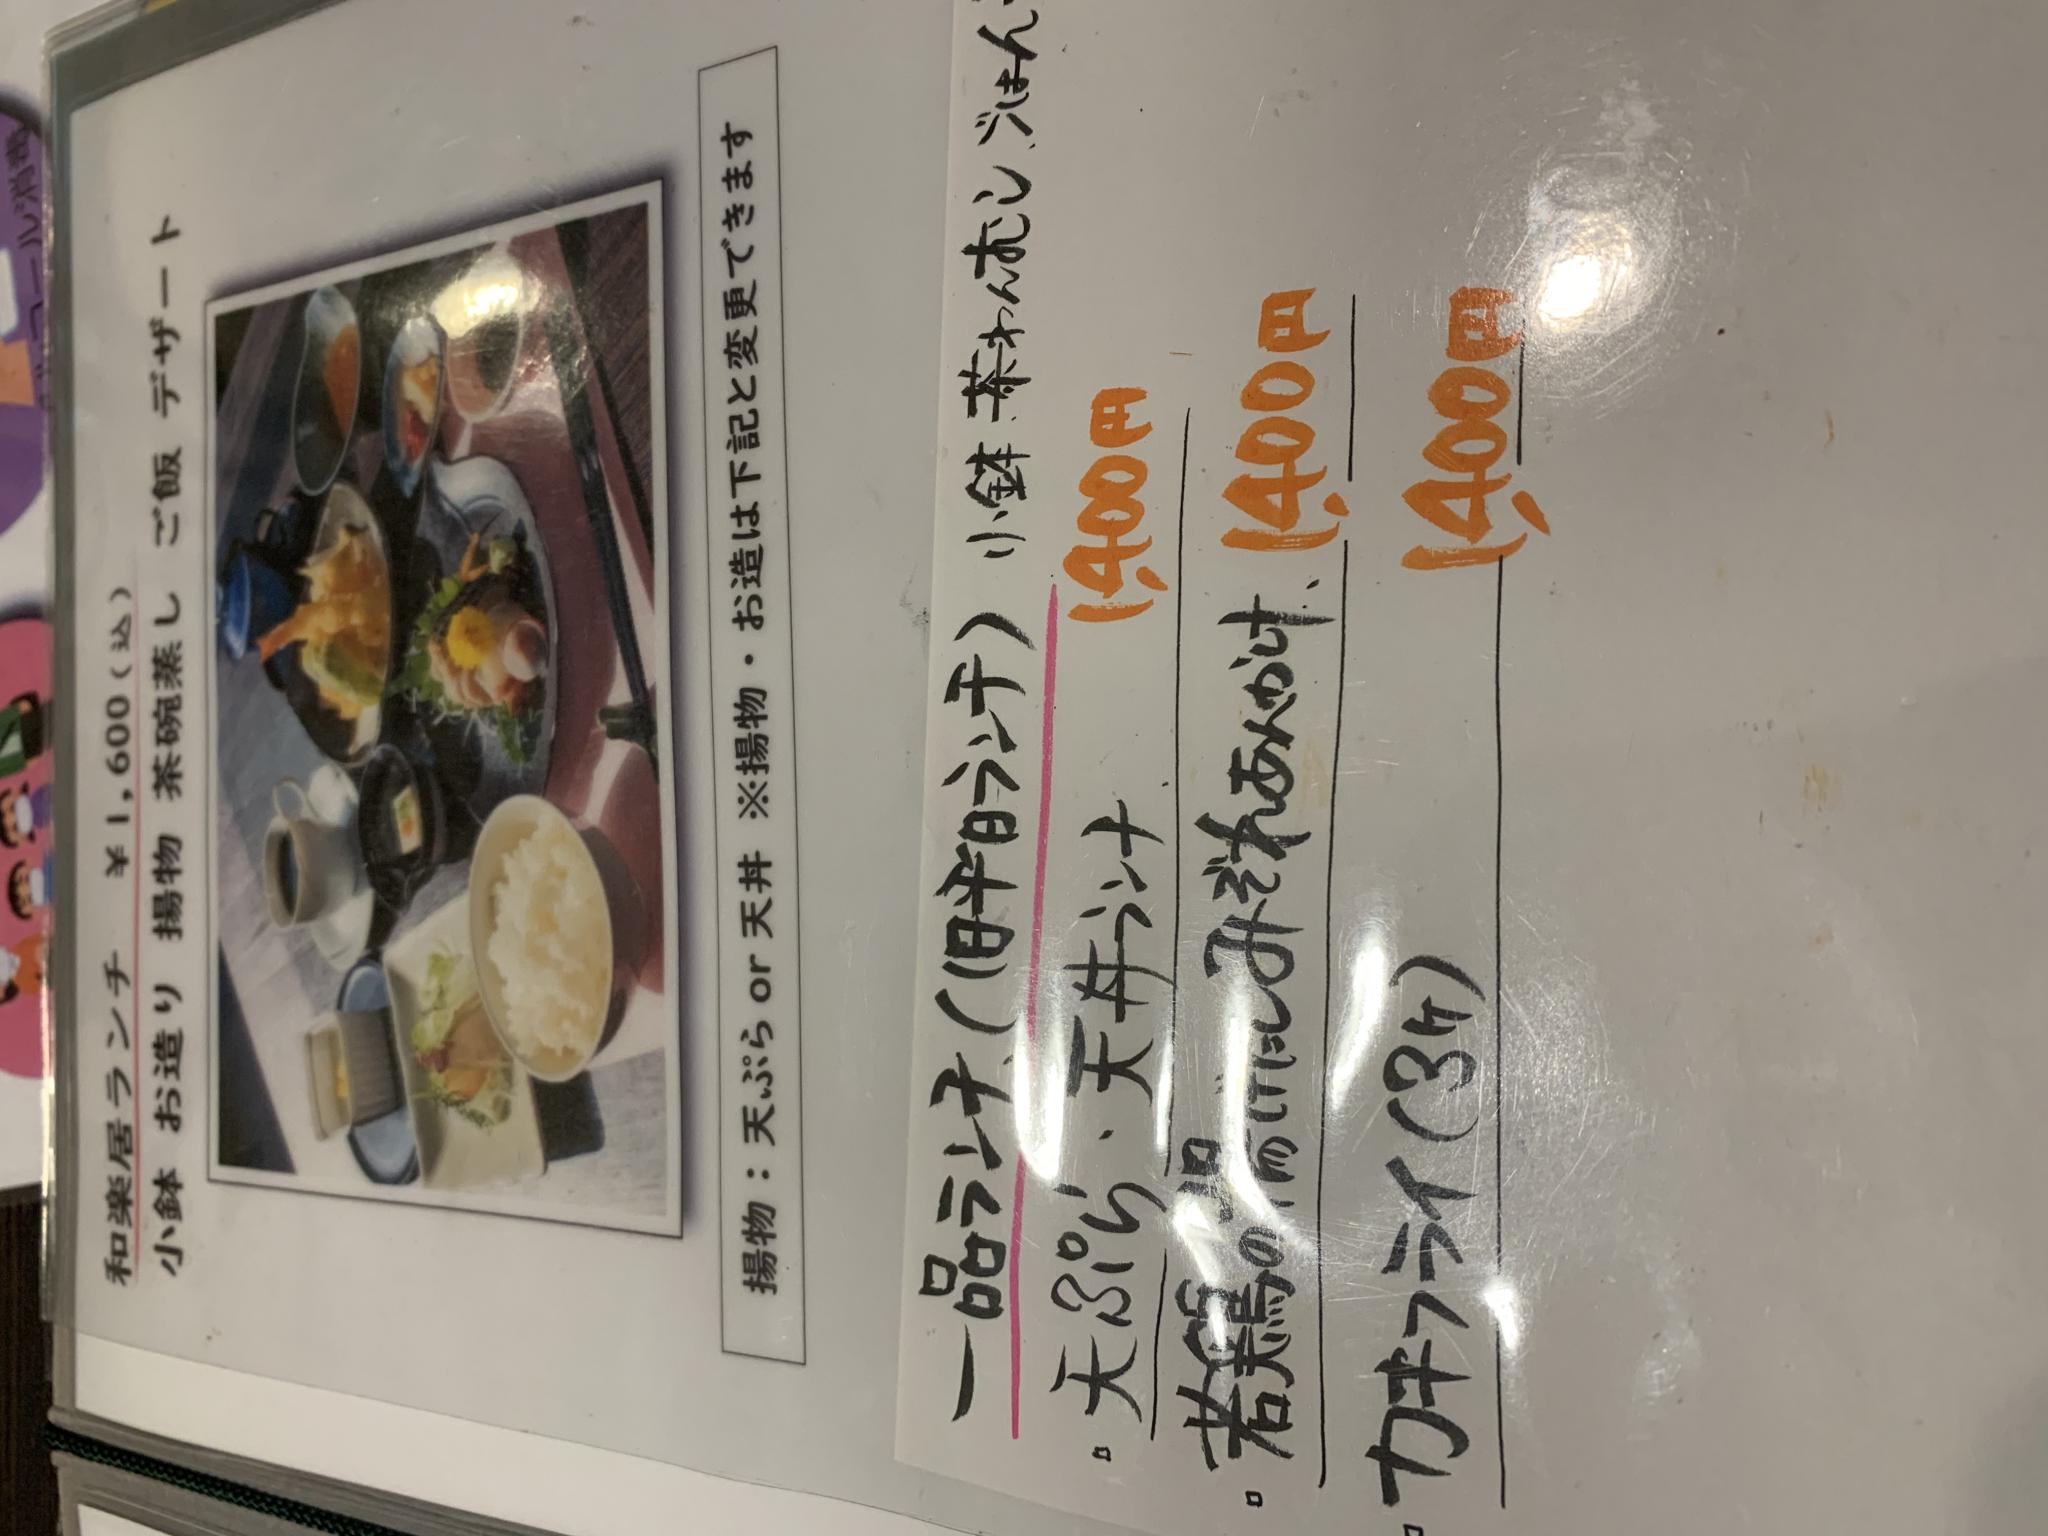 和楽居ランチ ￥1,600(込)
小鉢 お造り 揚物 茶碗蒸し ご飯 デザート
揚物：天ぷら or 天丼 ※揚物・お造は下記と変更できます
一品ランチ(旧平日ランチ) 小鉢 茶わんむし ごはん
・天ぷら、天丼ランチ 1,400円
・若鶏の みぞれあんかけ 1,400円
・カキフライ(3ケ) 1,400円